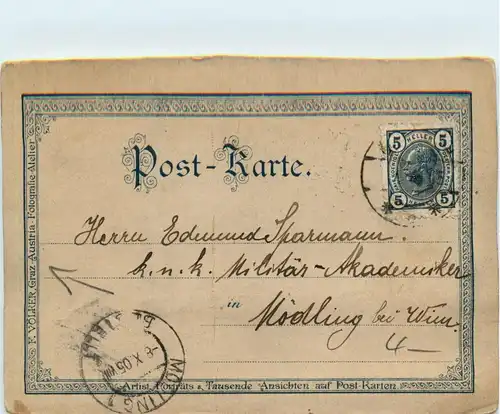 Post-Karte.
5 HELLER 5
5 5
Herrn Edmund Sparmann.
k. u. k. Militär-Akademiker
in
Mödling bei Wien.
4
MÖDLING 1
X 05
E. VÖLKER, Graz, Austria - Fotografie-Atelier
Artist. Porträts u. Tausende Ansichten auf Post-Karten